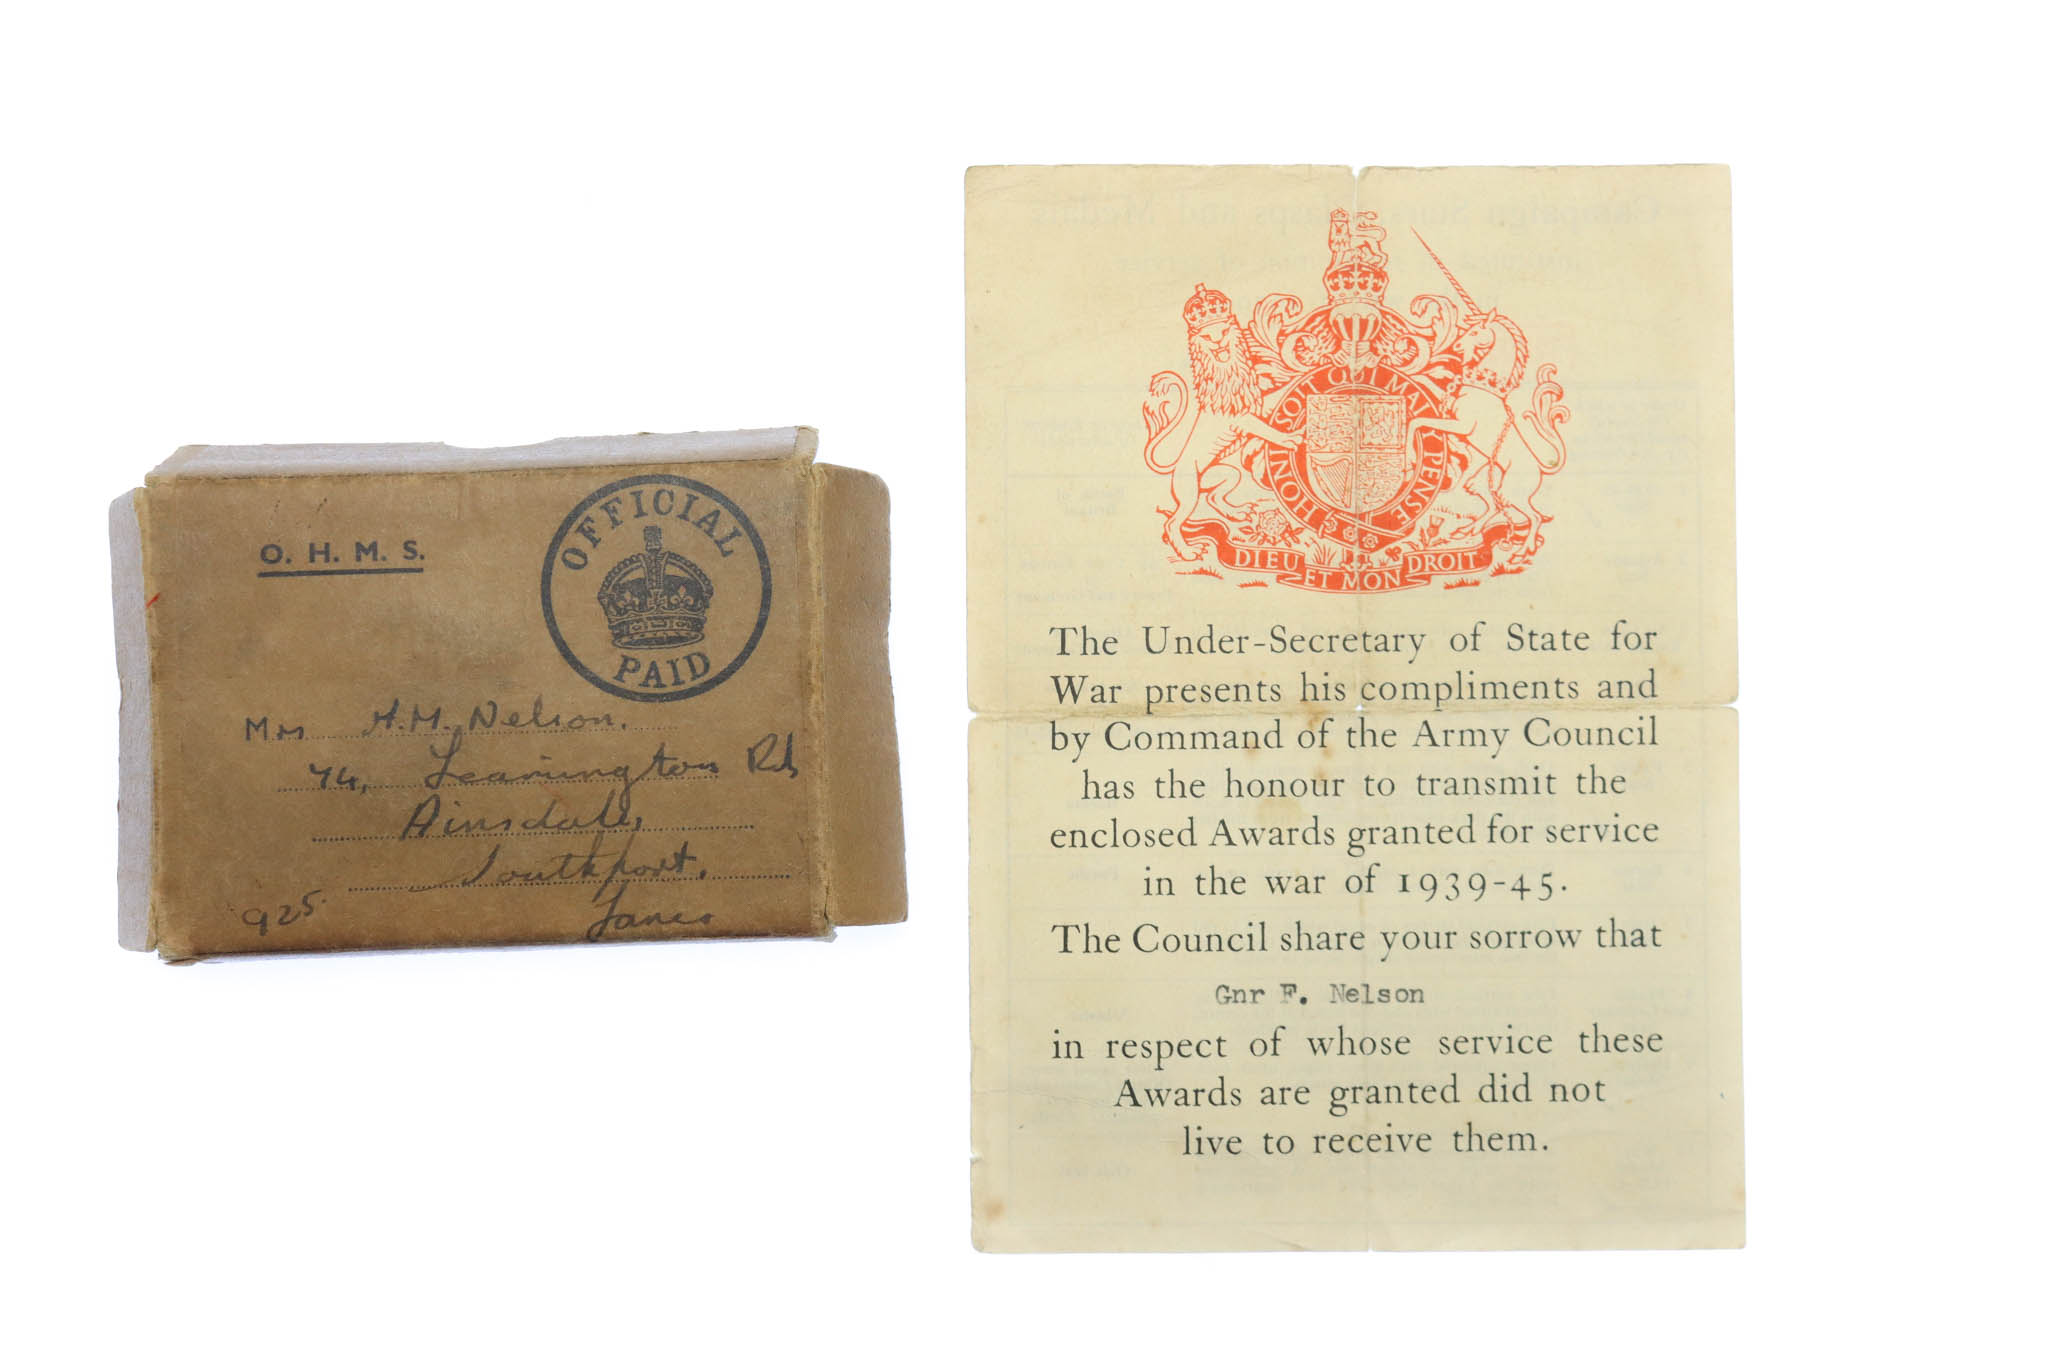 O. H. M. S.
OFFICIAL
PAID
Mrs H.M. Nelson.
74, Leamington Rd
Ainsdale,
Southport.
925.
Lancs
SOIT QUI MAL Y PENSE
HONI
DIEU ET MON DROIT
The Under-Secretary of State for
War presents his compliments and
by Command of the Army Council
has the honour to transmit the
enclosed Awards granted for service
in the war of 1939-45.
The Council share your sorrow that
Gnr F. Nelson
in respect of whose service these
Awards are granted did not
live to receive them.